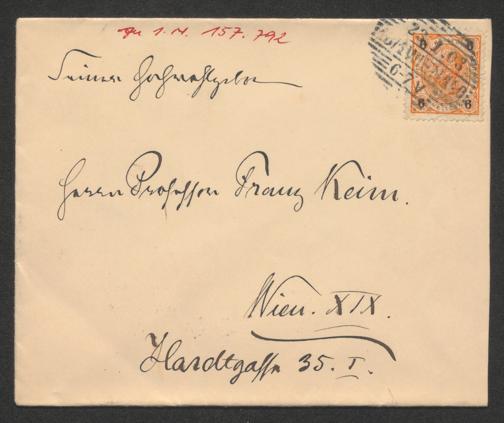 zu I. N. 157.792
Seiner Hochwohlgeboren
Herrn Professor Franz Keim.
Wien. XIX.
Hardtgasse 35. I.
6 6
6 6